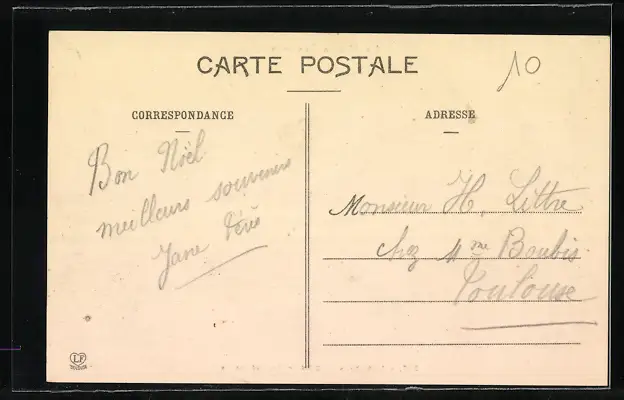 CARTE POSTALE
10
CORRESPONDANCE
Bon Noël
meilleurs souvenirs
Jane
ADRESSE
Monsieur H. Littre
chez Mme Boubis
Toulouse
LF